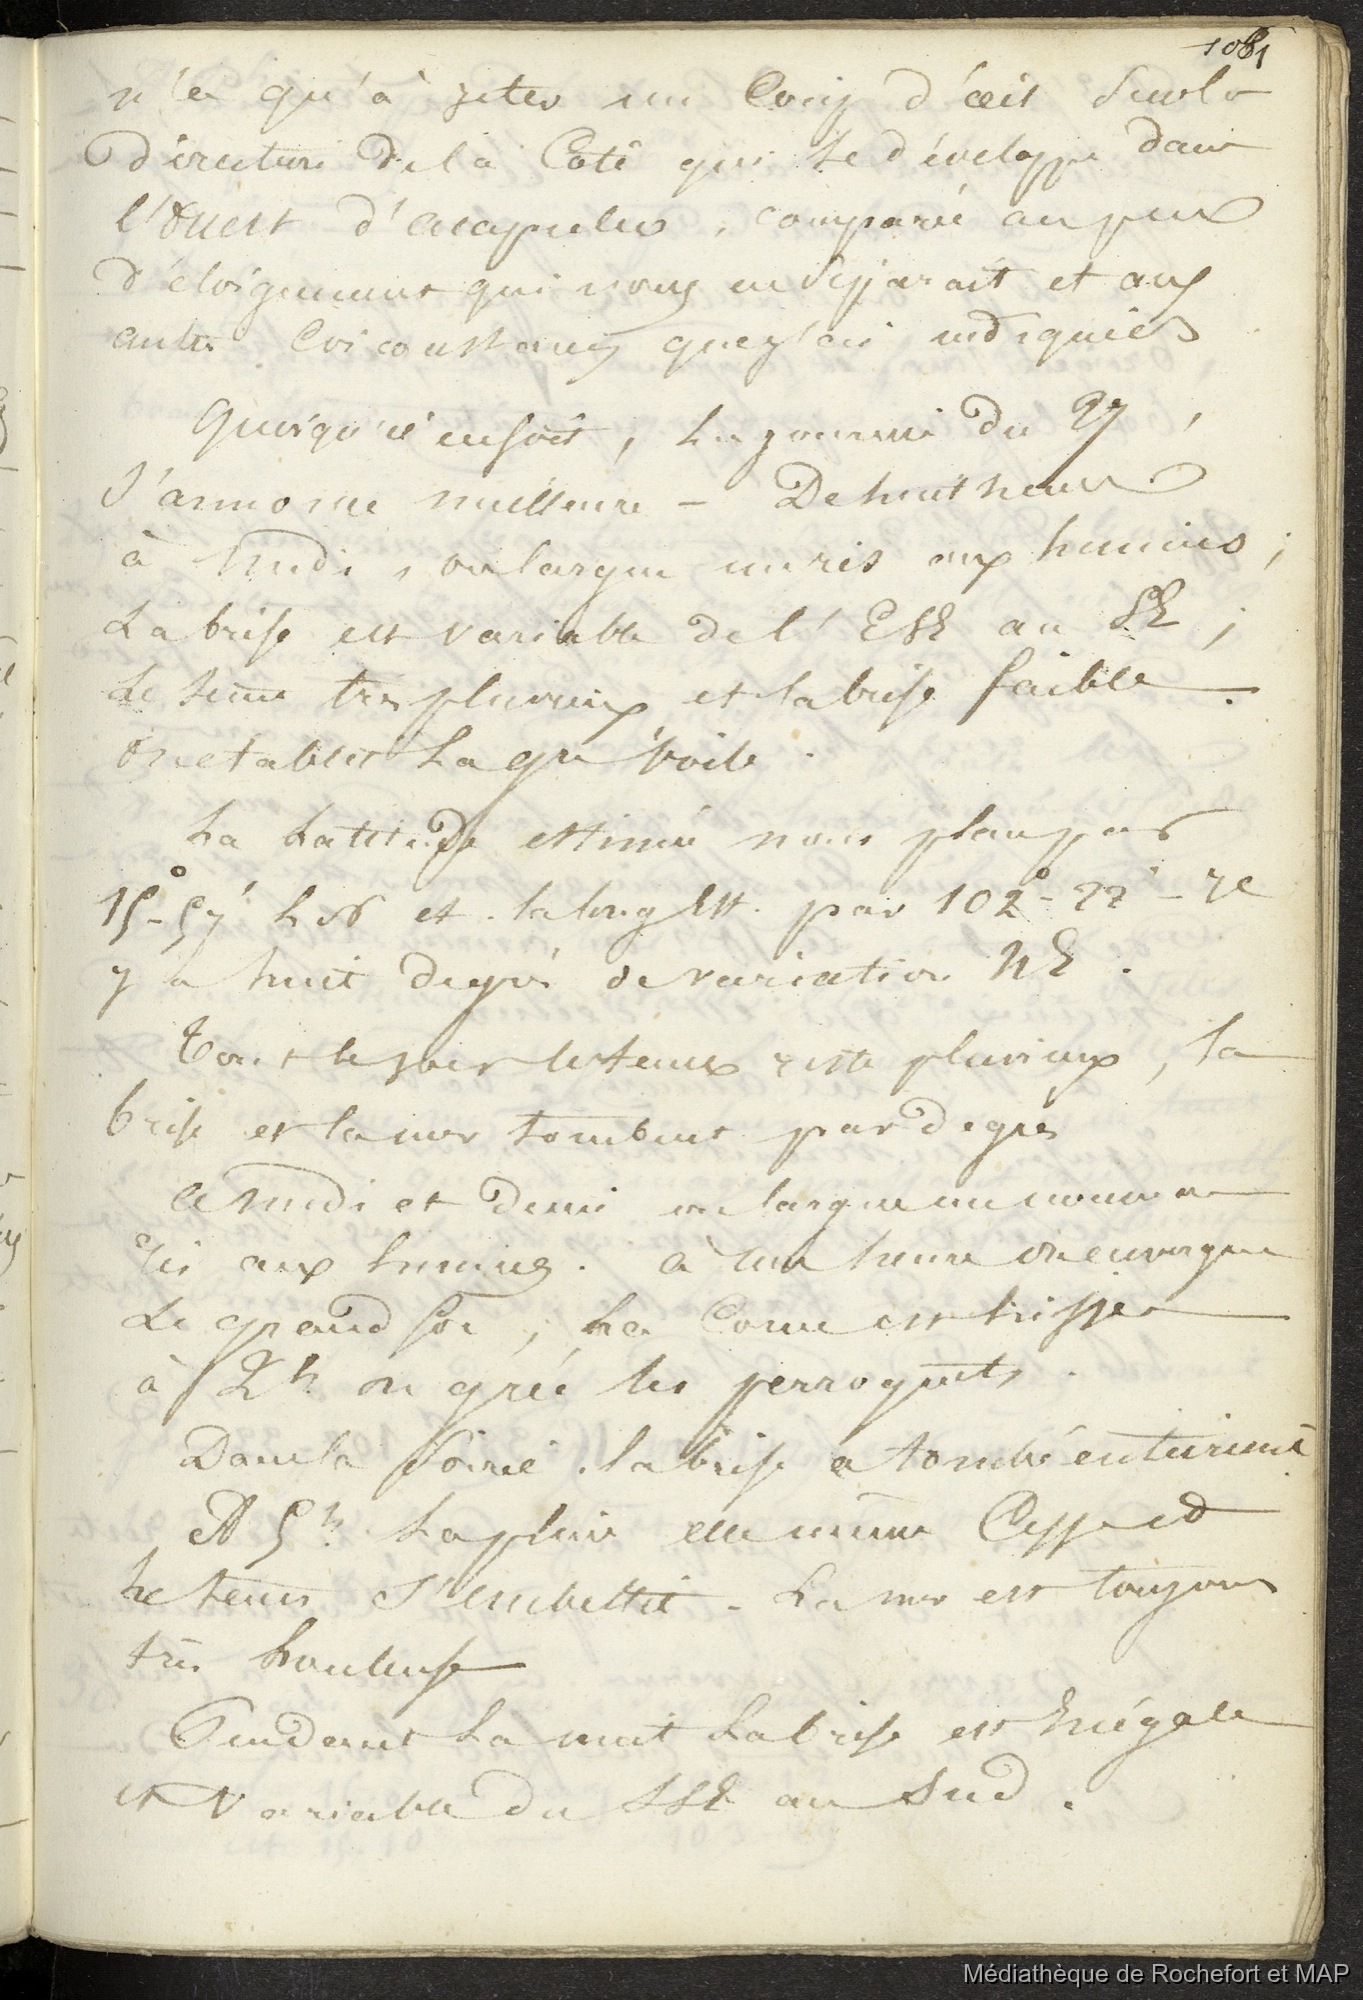 1081
n'a qu'à jeter un Coup d'œil Sur la
direction de la Côte qui se développe dans
l'Ouest d'acapulco, comparé au peu
d'éloignement qui nous en Separait et aux
autres Circonstances que j'ai indiquées
Quoiqu'il en soit, La journée du 27,
S'annonce meilleure - De huit heures
à Midi, on largue un ris aux huniers;
La brise est variable de l'ESE au SE;
Le temps très pluvieux et la brise faible.
On etablit La gde voile.
La Latitude estimée nous place par
15°-57' L N et la long Est. par 102°-22' - Il
y a huit degrés de variation NE.
Tout le jour le temps reste pluvieux, la
brise et la mer tombent par degrés
A Midi et demi on largue un nouveau
Ris aux huniers. à une heure on envergue
Le grand foc; La Corne est hissée
à 2h on grée les perroquets.
Dans la Soirée la brise a tombé entièrement
A 5h. La pluie elle même Cesse et
Le temps S'embellit - La mer est toujours
très houleuse
Pendant La nuit La brise est Inégale
et Variable du SSE au Sud.
Médiathèque de Rochefort et MAP